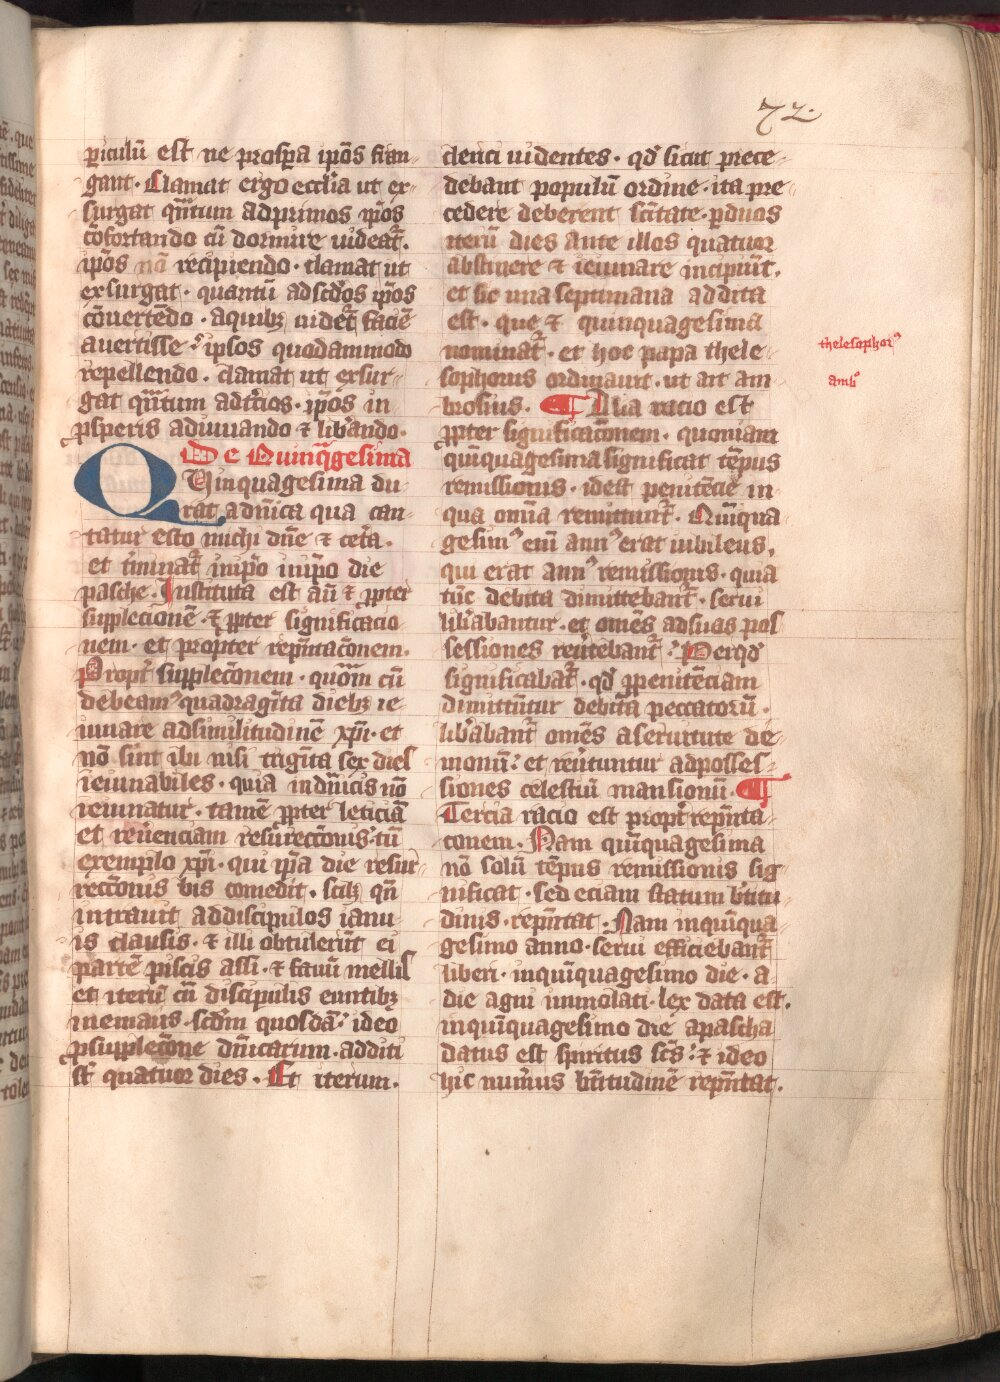 72.
ꝑiculū est ne prosꝑa ip̄os fran-
gant. Clamat ergo eccl̄ia ut ex-
surgat qn̄tum ad primos ip̄os
cōfortando cū dormire uideat᷑.
ip̄os nō recipiendo. clamat ut
exsurgat. quantū ad scd̄os ip̄os
cōuertēdo. a quibꝫ uidet᷑ faciē
auertisse. ipsos quodammodo
repellendo. clamat ut exsur-
gat qn̄tum ad tͥcios. ip̄os in
ꝓsperis adiuuando ⁊ lib̄ando.
De Quinq̄gesima
Quinquagesima du-
rat a dn̄ica qua can-
tatur esto michi dn̄e ⁊ cet̄a.
et t̄minat᷑ in ip̄o die
pasche. Instituta est aū ⁊ ꝓpter
supplecionē. ⁊ ꝓpter significacio-
nem. et propter rep̄ntac̄onem.
Propt̄ supplec̄onem. quōm cū
debeamꝰ quadragīta diebꝫ ie-
iunare ad similitudinē xp̄i. et
nō sint ibi nisi triginta sex dies
ieiunabiles. quia in dn̄icis nō
ieiunatur. tamē ꝓpter leticiā
et reūenciam resurrecc̄onis. tū
exemplo xp̄i. qui ip̄a die resur-
recc̄onis bis comedit. scilꝫ qn̄
intrauit ad discipulos ianu-
is clausis. ⁊ illi obtulerūt ei
partē piscis assi. ⁊ fauū mellis
et iterū cū discipulis euntibꝫ
in emaus. scd̄m quosdā. ideo
ꝓ supplec̄one dn̄icarum. additi
sūt quatuor dies. Et iterum.
clerici uidentes. qd̄ sicut prece-
debant populū ordine. ita pre-
cedere deberent sc̄itate. ꝑ duos
iterū dies ante illos quatuor
abstinere ⁊ ieiunare incipiūt.
et sic una septimana addita
est. que ⁊ quinquagesima
nominat᷑. et hoc papa thele-
sophorus ordinauit. ut ait am-
brosius. ¶ Alia racio est
ꝓpter significac̄onem. quoniam
quīquagesima significat tēpus
remissionis. id est penitēcie in
qua omīa remittunt᷑. Quīqua-
gesimꝰ enī annꝰ erat iubileus,
qui erat annꝰ remissionis. quia
tūc debita dimittebant᷑. serui
lib̄abantur. et omēs ad suas pos-
sessiones reūtebant᷑. Per qd̄
significabat᷑. qd̄ ꝑ penitēciam
dimittūtur debita peccatorū.
lib̄abant᷑ omēs a seruitute de-
monū. et reūtuntur ad posses-
siones celestiū mansionū. ¶
Tercia racio est propt̄ rep̄nta-
c̄onem. Nam quīquagesima
nō solū tēpus remissionis sig-
nificat. sed eciam statum b̄titu-
dinis. rep̄ntat. Nam in quīqua-
gesimo anno. serui efficiebant᷑
liberi. in quīquagesimo die. a
die agni immolati. lex data est.
in quīquagesimo die a pascha
datus est spiritus sc̄s. ⁊ ideo
hic num̄us b̄titudinē rep̄ntat.
thelesophorꝰ
ambꝰ